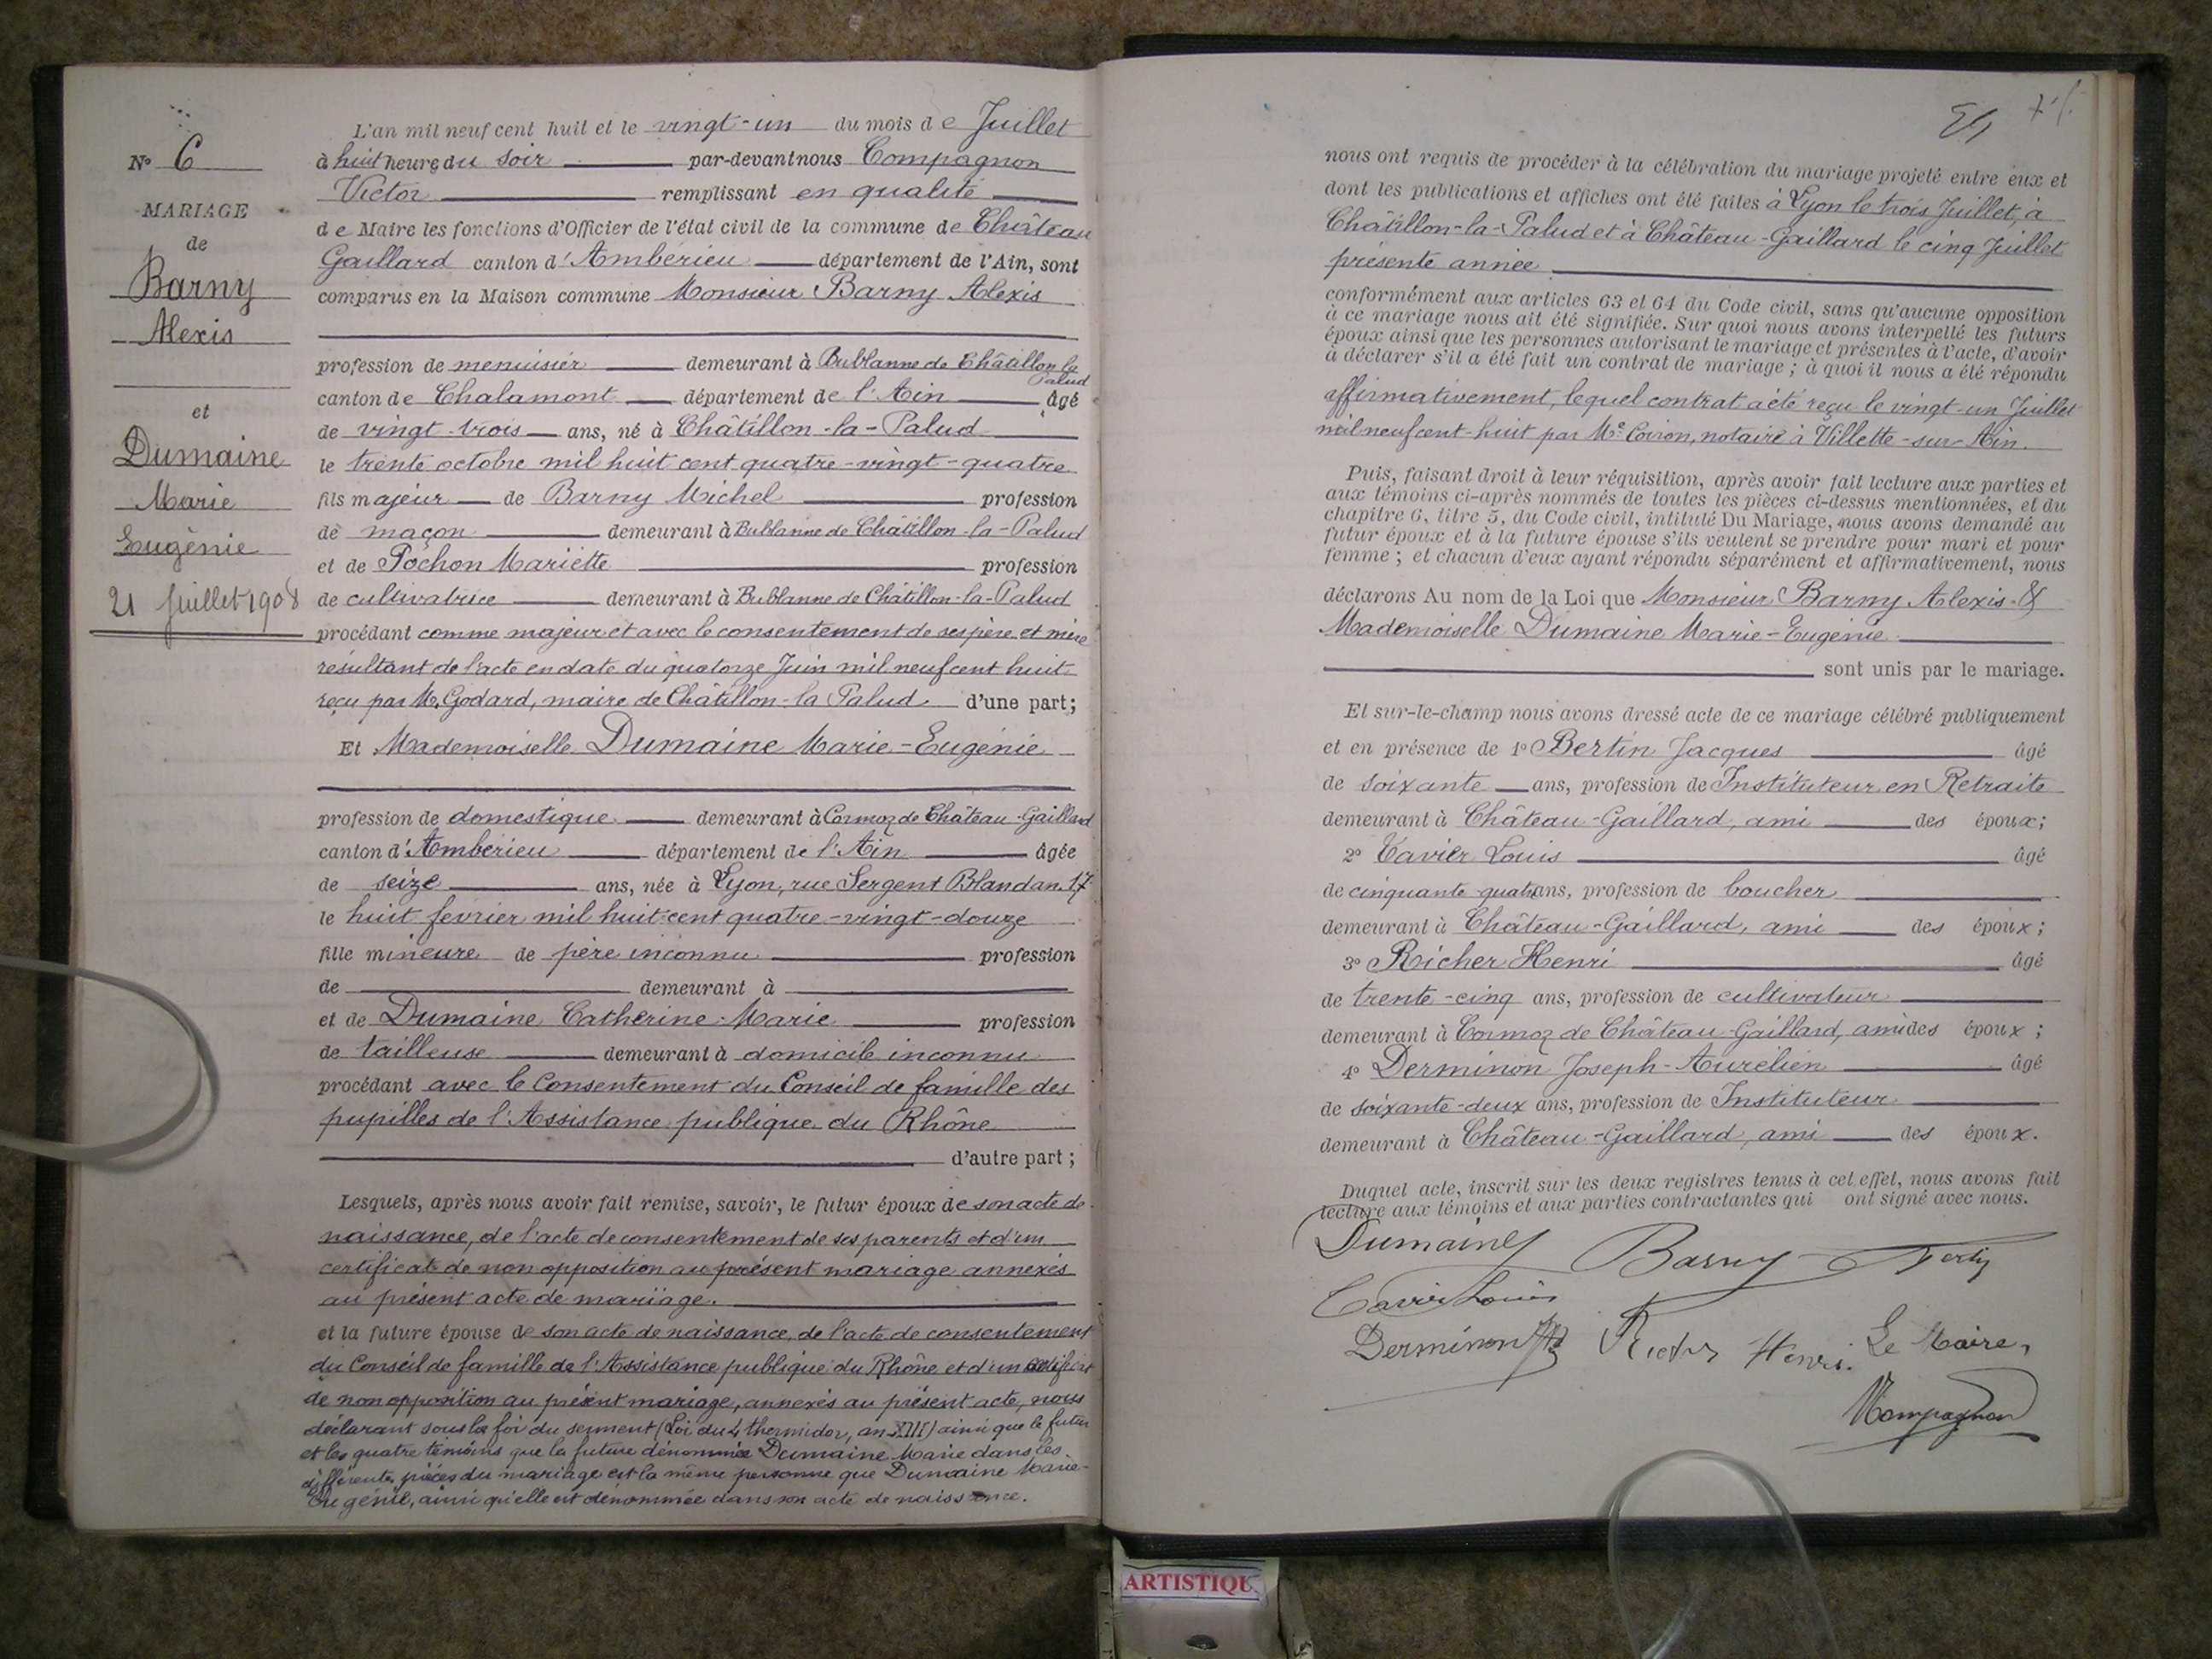 N° 6
MARIAGE
de
Barny
Alexis
et
Dumaine
Marie
Eugénie
21 Juillet 1908
L'an mil neuf cent huit et le vingt-un du mois de Juillet
à huit heures du soir par-devant nous Compagnon
Victor remplissant en qualité
de Maire les fonctions d'Officier de l'état civil de la commune de Château
Gaillard canton d'Ambérieu département de l'Ain, sont
comparus en la Maison commune Monsieur Barny Alexis
profession de menuisier demeurant à Bublanne de Châtillon la
Palud
canton de Chalamont département de l'Ain âgé
de vingt-trois ans, né à Châtillon-la-Palud
le trente octobre mil huit cent quatre-vingt-quatre
fils majeur de Barny Michel profession
de maçon demeurant à Bublanne de Châtillon-la-Palud
et de Pochon Mariette profession
de cultivatrice demeurant à Bublanne de Châtillon-la-Palud
procédant comme majeur et avec le consentement de ses père et mère
résultant de l'acte en date du quatorze Juin mil neuf cent huit
reçu par M. Godard, maire de Châtillon-la Palud d'une part;
Et Mademoiselle Dumaine Marie-Eugénie
profession de domestique demeurant à Cormoz de Château-Gaillard
canton d'Ambérieu département de l'Ain âgée
de seize ans, née à Lyon, rue Sergent Blandan 17
le huit février mil huit cent quatre-vingt-douze
fille mineure de père inconnu profession
de demeurant à
et de Dumaine Catherine-Marie profession
de tailleuse demeurant à domicile inconnu
procédant avec le Consentement du Conseil de famille des
pupilles de l'Assistance publique du Rhône
d'autre part;
Lesquels, après nous avoir fait remise, savoir, le futur époux de son acte de
naissance, de l'acte de consentement de ses parents et d'un
certificat de non opposition au présent mariage annexés
au présent acte de mariage.
et la future épouse de son acte de naissance, de l'acte de consentement
du Conseil de famille de l'Assistance publique du Rhône et d'un certificat
de non opposition au présent mariage, annexés au présent acte, nous
déclarant sous la foi du serment (Loi du 4 thermidor, an XIII) ainsi que le futur
et les quatre témoins que la future dénommée Dumaine Marie dans les
différentes pièces du mariage est la même personne que Dumaine Marie-
Eugénie, ainsi qu'elle est dénommée dans son acte de naissance.
nous ont requis de procéder à la célébration du mariage projeté entre eux et
dont les publications et affiches ont été faites à Lyon le trois Juillet, à
Châtillon-la-Palud et à Château-Gaillard le cinq Juillet
présente année
conformément aux articles 63 et 64 du Code civil, sans qu'aucune opposition
à ce mariage nous ait été signifiée. Sur quoi nous avons interpellé les futurs
époux ainsi que les personnes autorisant le mariage et présentes à l'acte, d'avoir
à déclarer s'il a été fait un contrat de mariage; à quoi il nous a été répondu
affirmativement, lequel contrat a été reçu le vingt-un Juillet
mil neuf cent-huit par Me notaire à Villette-sur-Ain.
Puis, faisant droit à leur réquisition, après avoir fait lecture aux parties et
aux témoins ci-après nommés de toutes les pièces ci-dessus mentionnées, et du
chapitre 6, titre 5, du Code civil, intitulé Du Mariage, nous avons demandé au
futur époux et à la future épouse s'ils veulent se prendre pour mari et pour
femme; et chacun d'eux ayant répondu séparément et affirmativement, nous
déclarons Au nom de la Loi que Monsieur Barny Alexis &
Mademoiselle Dumaine Marie-Eugénie
sont unis par le mariage.
Et sur-le-champ nous avons dressé acte de ce mariage célébré publiquement
et en présence de 1° Bertin Jacques âgé
de soixante ans, profession de Instituteur en Retraite
demeurant à Château-Gaillard, ami des époux;
2° Cavier Louis âgé
de cinquante quatre ans, profession de boucher
demeurant à Château-Gaillard, ami des époux;
3° Richer Henri âgé
de trente-cinq ans, profession de cultivateur
demeurant à Cormoz de Château-Gaillard, ami des époux;
4° Derminon Joseph-Aurélien âgé
de soixante-deux ans, profession de Instituteur
demeurant à Château-Gaillard, ami des époux.
Duquel acte, inscrit sur les deux registres tenus à cet effet, nous avons fait
lecture aux témoins et aux parties contractantes qui ont signé avec nous.
Dumaine Barny Bertin
Cavier Louis
Derminon Richer Henri. Le Maire,
VCompagnon
ARTISTIQU